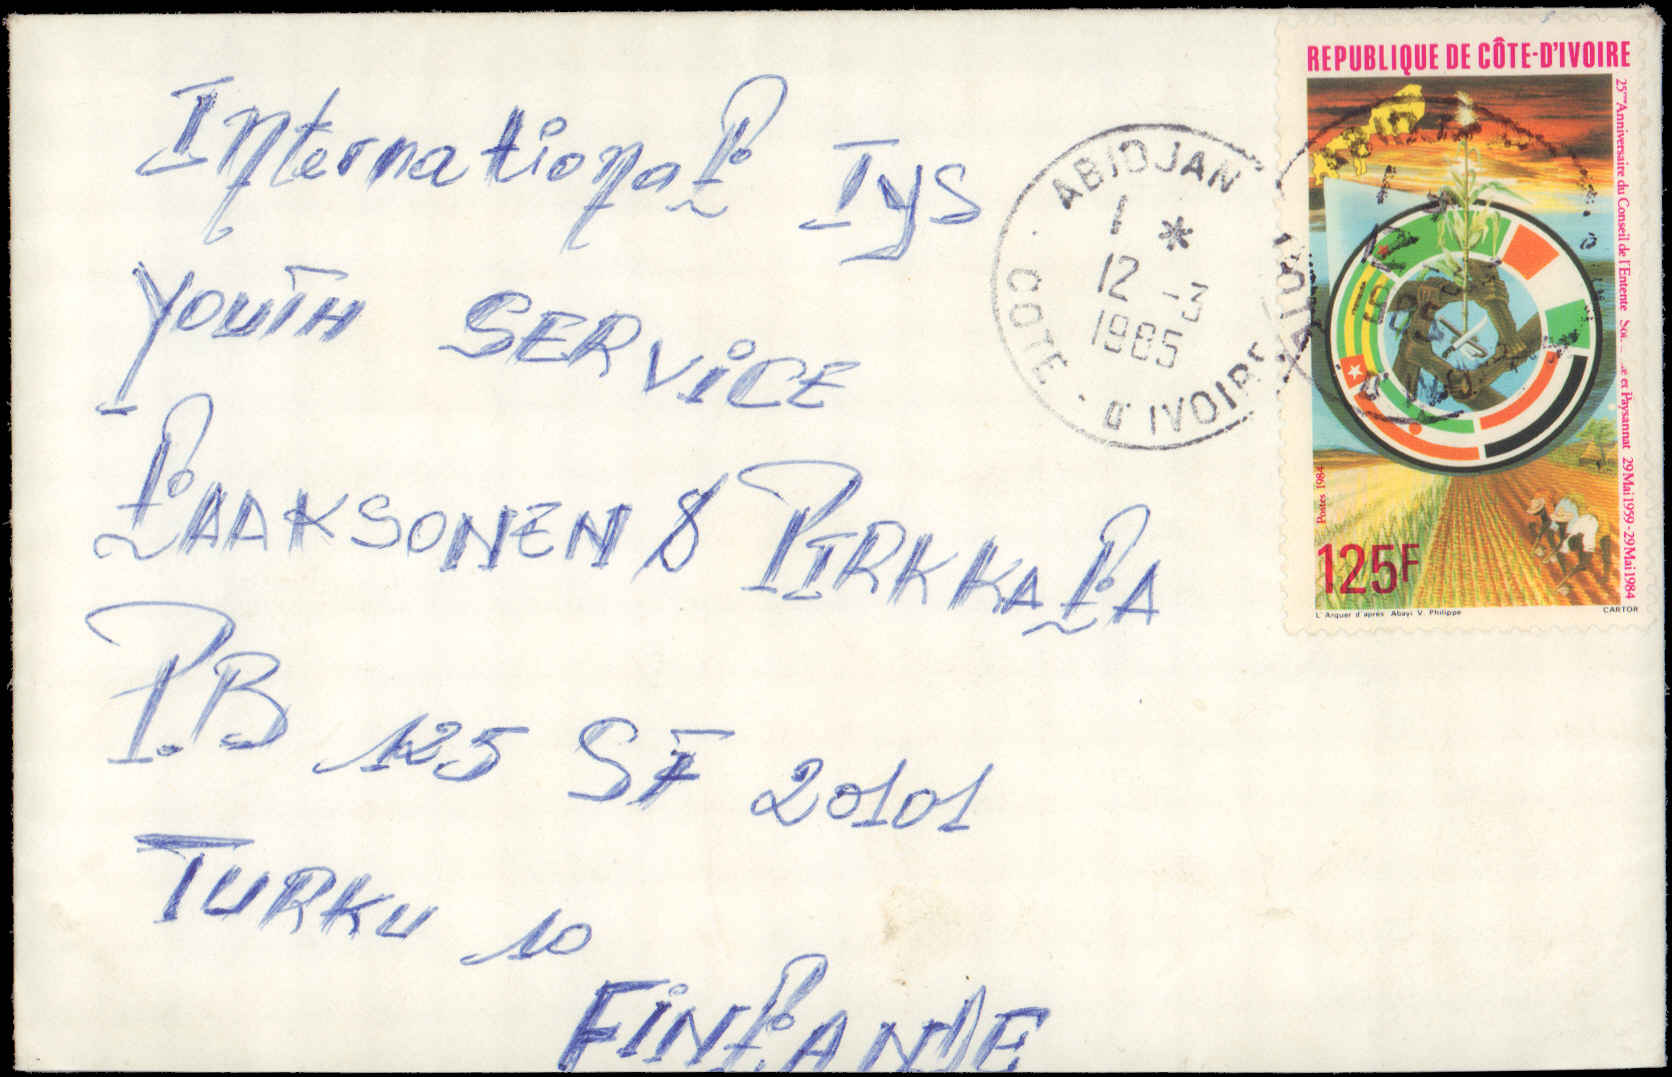 International IYS
YOUTH SERVICE
LAAKSONEN & PIRKKALA
P.B 125 SF 20101
TURKU 10
FINLANDE
ABIDJAN
1 *
12 -3
1985
COTE - D'IVOIRE
REPUBLIQUE DE CÔTE-D'IVOIRE
25ème Anniversaire du Conseil de l'Entente et Paysannat 29 Mai 1959 - 29 Mai 1984
Postes 1984
125F
L'Arquer d'après Abayi V. Philippe
CARTOR